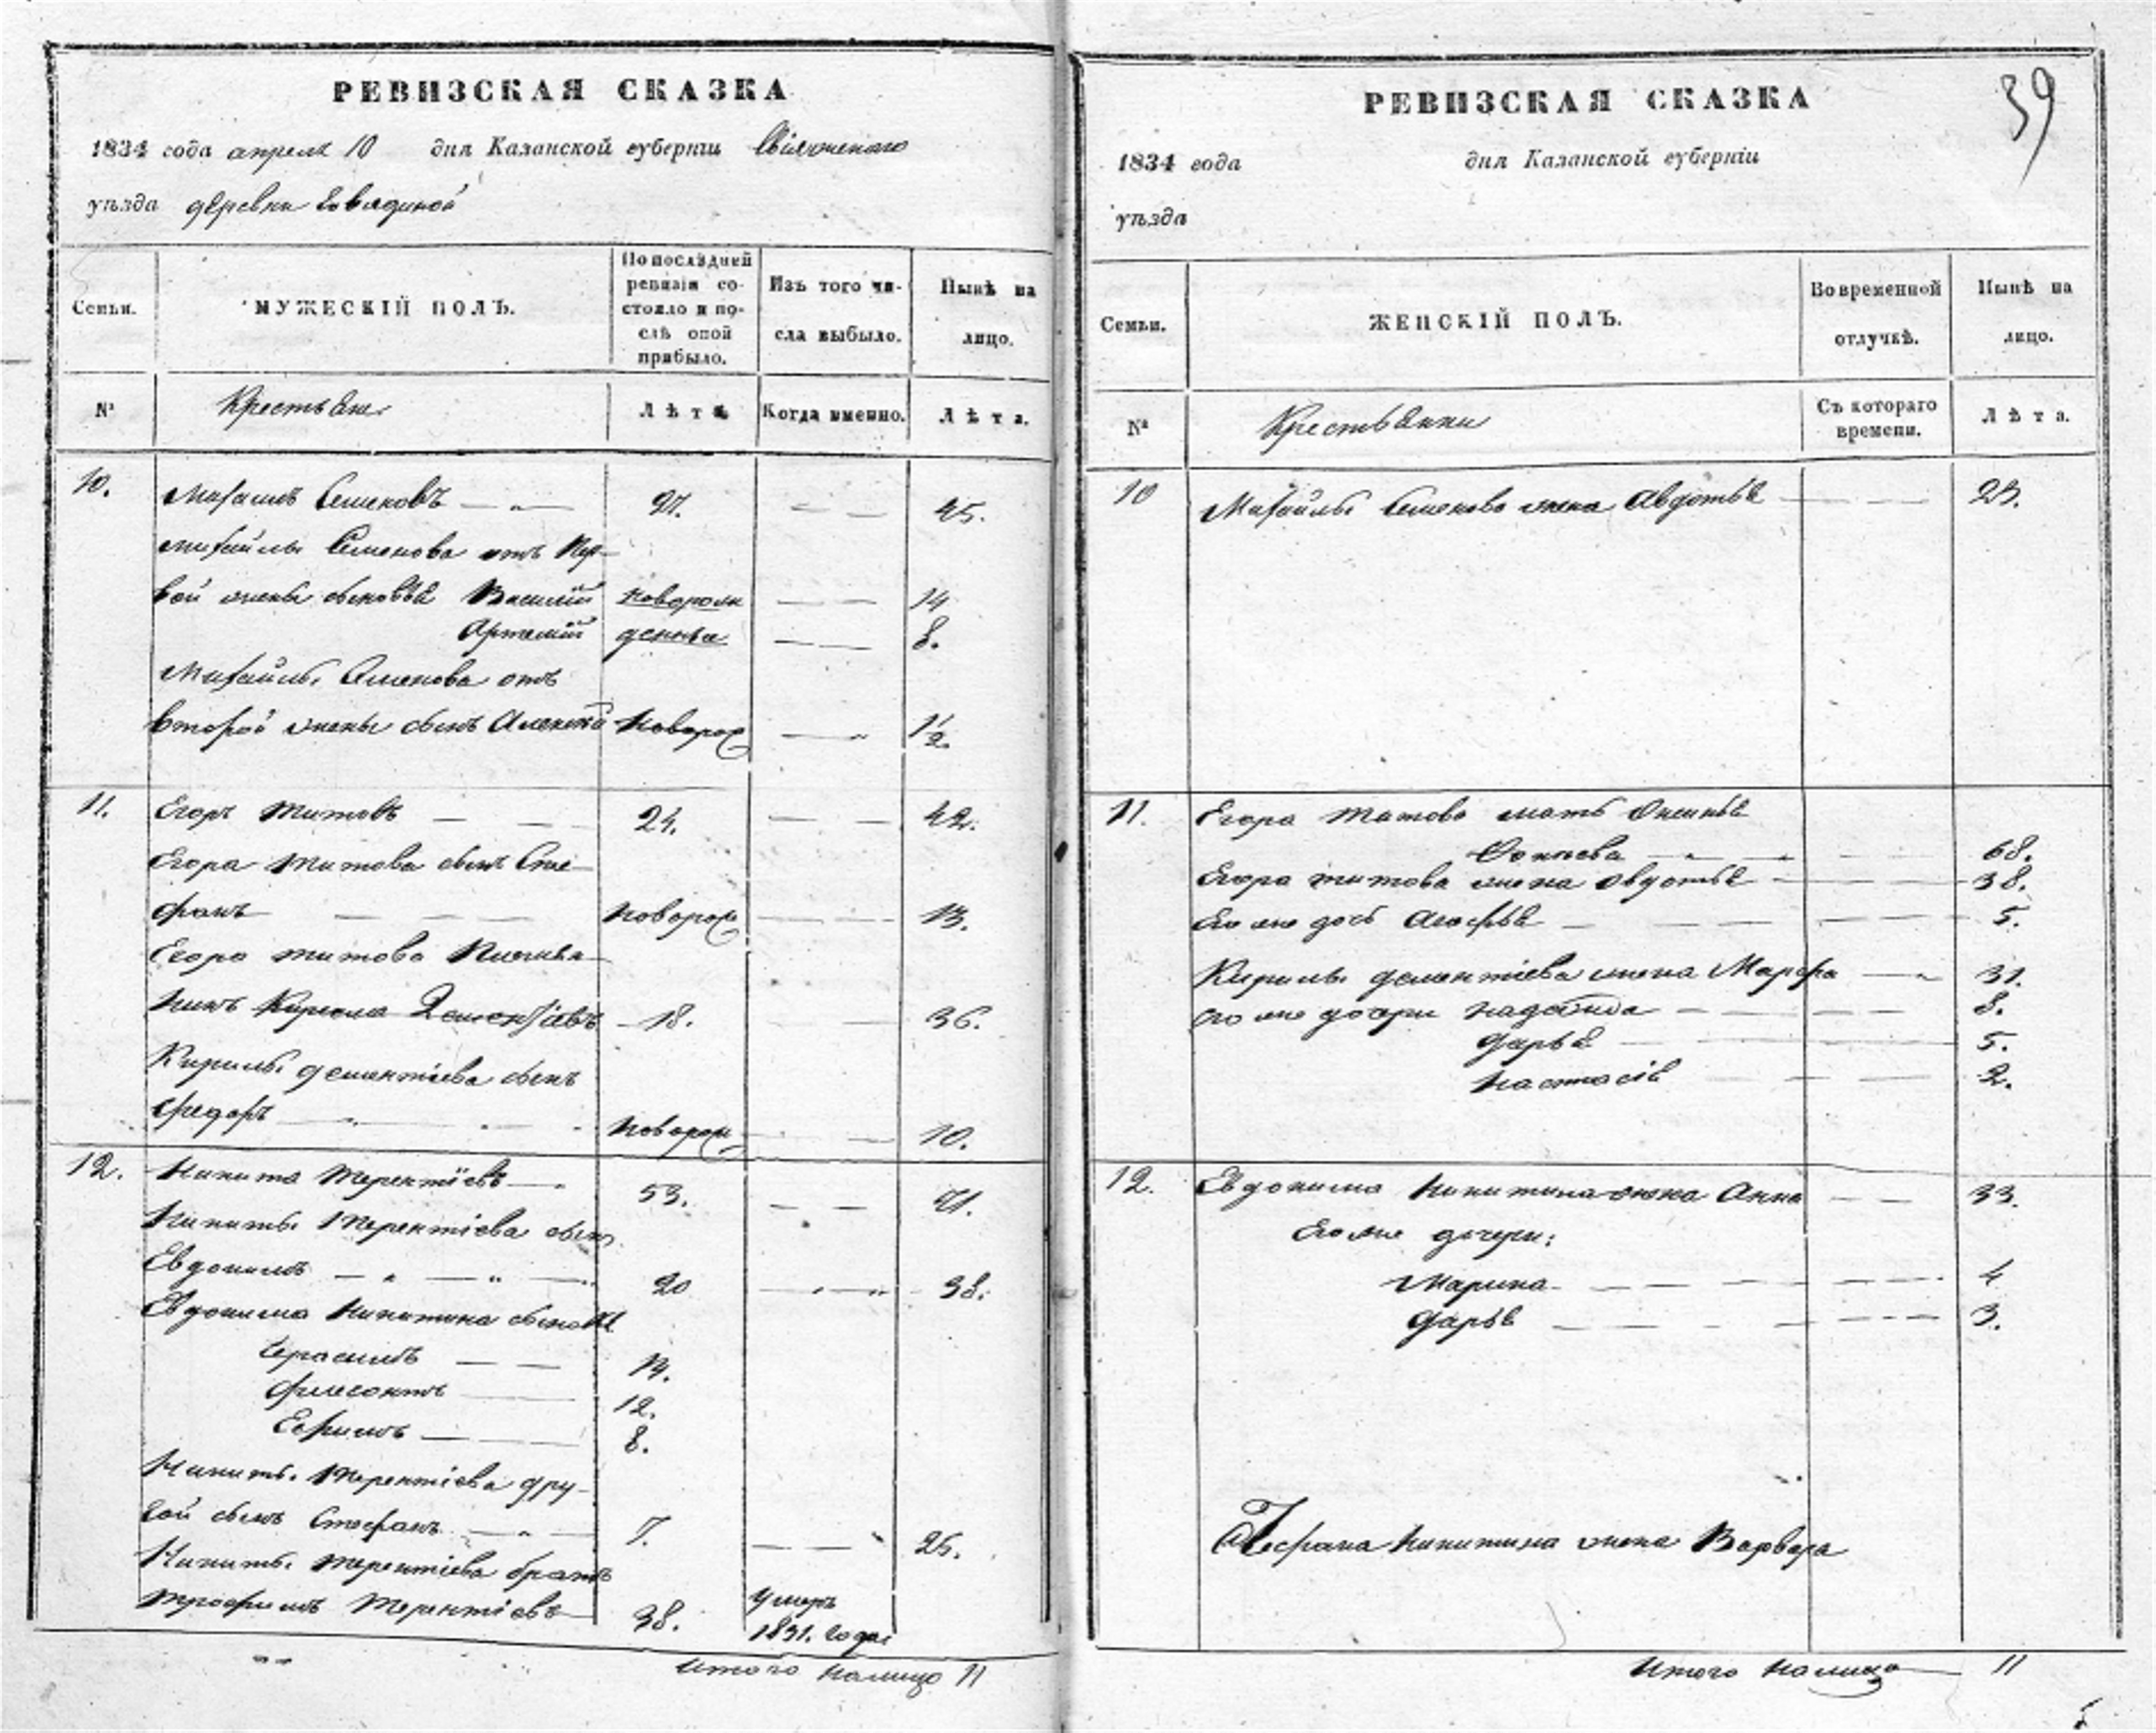 РЕВИЗСКАЯ СКАЗКА
1834 года апреля 10 дня Казанской губерніи Свіяжскаго
уѣзда деревни
Семьи.
МУЖЕСКІЙ ПОЛЪ.
По послѣдней ревизіи со-
стояло и по-
слѣ оной
прибыло.
Изъ того чи-
сла выбыло.
Нынѣ на
лицо.
№
Крестьяне
Лѣта
Когда именно.
Лѣта.
10. Михаилъ Семеновъ 27. 45.
Михайлы Семенова отъ пер-
вой жены сыновья Василій новорож 14
Артемій денныя 8.
Михайлы Семенова отъ
второй жены сынъ Алексѣй Новорож 1 1/2
11. Егоръ Титовъ 24. 42.
Егора Титова сынъ Сте-
фанъ новорож 13.
Егора Титова
Кирила Дементіевъ 18. 36.
Кирилы Дементіева сынъ
Федоръ новорож 10.
12. Никита Терентіевъ 53. 71.
Никиты Терентіева сынъ
Евдокимъ 20 38.
Евдокима Никитина сыновья
Герасимъ 14.
12.
Ефимъ 8.
Никиты Терентіева дру-
гой сынъ Стефанъ 7. 25.
Никиты Терентіева братъ
Трофимъ Терентіевъ 38. умеръ
1831. года
Итого налицо 11
РЕВИЗСКАЯ СКАЗКА
39
1834 года дня Казанской губерніи
уѣзда
Семьи.
ЖЕНСКІЙ ПОЛЪ.
Во временной
отлучкѣ.
Нынѣ на
лицо.
№
Крестьянки
Съ котораго
времени.
Лѣта.
10 Михайлы Семенова жена Авдотья 23.
11. Егора Титова мать Аксинья
68.
Егора Титова жена Авдотья 38.
Его же дочь Агафья 5.
Кирилы Дементіева жена Марфа 31.
Его же дочери 8.
Дарья 5.
Настасія 2.
12. Евдокима Никитина жена Анна 33.
Его же дочери:
Марина 4
Дарья 3.
Стефана Никитина жена Варвара
Итого налицо 11